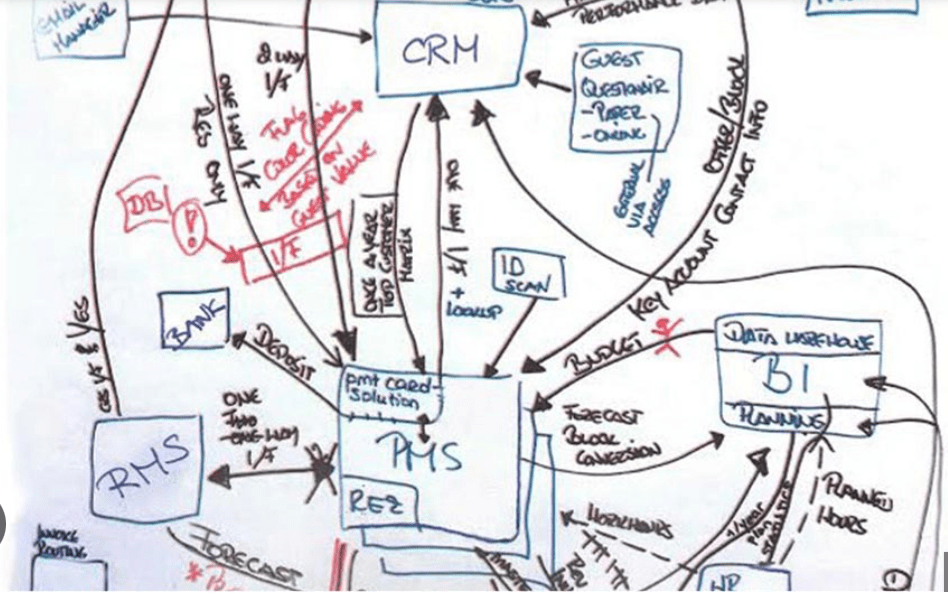 EMAIL
MANAGER
CRM
PERFORMANCE
GUEST
QUESTIONAIR
-PAPER
-ONLINE
EXTERNAL
VIA
ACCESS
2 WAY
I/F
ONE WAY I/F
RES ONLY
COLOR CODING
BASED ON
GUEST VALUE
DB
!
I/F
ONCE A YEAR
TOP CUSTOMER
MATRIX
+
LOOKUP
ID
SCAN
OFFER/BLOCK
KEY ACCOUNT CONTACT INFO
BANK
DEPOSIT
BUDGET
DATA WAREHOUSE
BI
PLANNING
pmt card-
solution
PMS
REZ
ONE
TWO
ONE WAY
I/F
RMS
FORECAST
BLOCK
CONVERSION
PLANNED
HOURS
WORKHOURS
INVOICE
ROUTING
FORECAST
HR